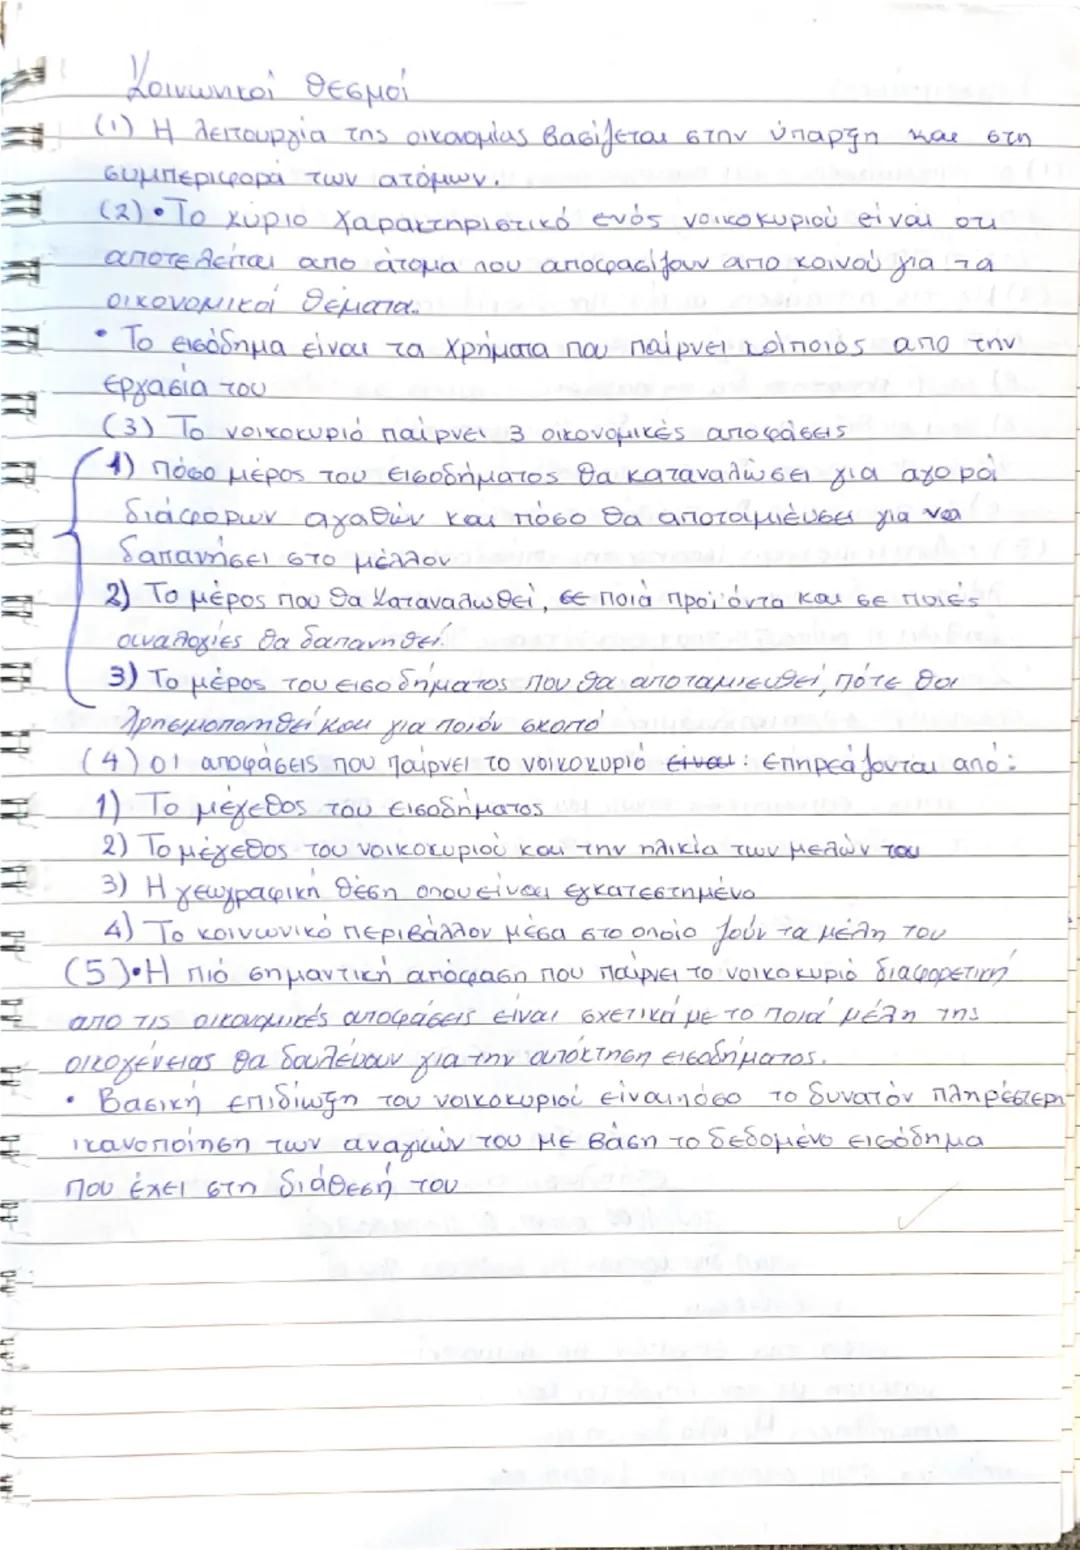 Κοινωνικοί θεσμοί
(1) Η λειτουργία της οικονομίας βασίζεται στην ύπαρξη και στη
συμπεριφορά των ατόμων.
(2) • Το κύριο χαρακτηριστικό ενός νοικοκυριού είναι οτι
αποτελείται απο άτομα που αποφασίζουν απο κοινού για τα
οικονομικοί θέματα.
• Το εισόδημα είναι τα χρήματα που παίρνει κάποιος απο την
εργασία του
(3) Το νοικοκυριό παίρνει 3 οικονομικές αποφάσεις
1) Πόσο μέρος του εισοδήματος θα καταναλώσει για αγορά
διάφορων αγαθών και πόσο θα αποταμιέυσει για να
δαπανήσει στο μέλλον
2) Το μέρος που θα καταναλωθεί, σε ποιά προϊόντα και σε ποιές
αναλογίες θα δαπανηθεί.
3) Το μέρος του εισοδήματος που θα αποταμιευθεί, πότε θα
χρησιμοποιηθεί και για ποιόν σκοπό
(4) οι αποφάσεις που παίρνει το νοικοκυριό είναι: επηρεάζονται από:
1) Το μέγεθος του εισοδήματος
2) Το μέγεθος του νοικοκυριού και την ηλικία των μελών του
3) Η γεωγραφική θέση οπου είναι εγκατεστημένο
4) Το κοινωνικό περιβάλλον μέσα στο οποίο ζούν τα μέλη του
(5) • Η πιό σημαντική απόφαση που παίρνει το νοικοκυριό διαφορετική
απο τις οικονομικές αποφάσεις είναι σχετικά με το ποιά μέλη της
οικογένειας θα δουλέυουν για την απόκτηση εισοδήματος.
• Βασική επιδίωξη του νοικοκυριού είναι πόσο το δυνατόν πληρέστερη
ικανοποίηση των αναγκών του με βάση το δεδομένο εισόδημα
που έχει στη διάθεσή του